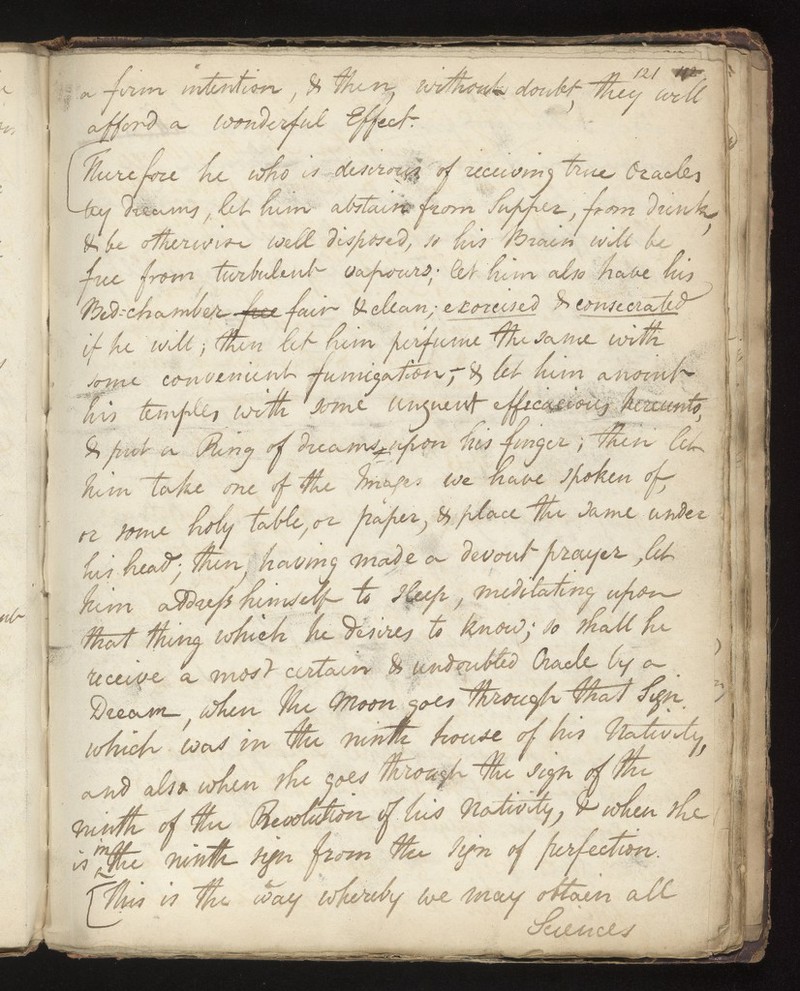 121
a firm intention, & then, without doubt, they will
afford a wonderful Effect.
Therefore he who is desirous of receiving true Oracles
by dreams, let him abstain from Supper, from drink,
& be otherwise well disposed, so his Brain will be
free from turbulent vapours; let him also have his
Bed=chamber free fair & clean; exorcised & consecrated
if he will; then let him perfume the same with
some convenient fumigation; & let him anoint
his temples with some unguent efficacious hereunto,
& put a Ring of dreams upon his finger; then let
him take one of the Images we have spoken of,
or some holy table, or paper, & place the same under
his head; then, having made a devout prayer, let
him address himself to sleep, meditating upon
that thing which he desires to know; so shall he
receive a most certain & undoubted Oracle by a
Dream, when the Moon goes through that Sign
which was in the ninth house of his Nativity,
and also when she goes through the sign of the
ninth of the Revolution of his Nativity, & when she
is in the ninth sign from the sign of perfection.
This is the way whereby we may obtain all
Sciences